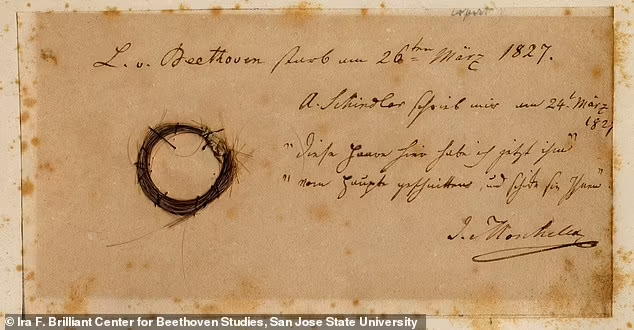 L. v. Beethoven starb am 26ten März 1827.
A. Schindler schrieb mir am 24t. März
1827
"diese Haare hier habe ich jetzt ihm"
"vom Haupte geschnitten, und schicke sie Ihnen."
I. Moscheles
© Ira F. Brilliant Center for Beethoven Studies, San Jose State University